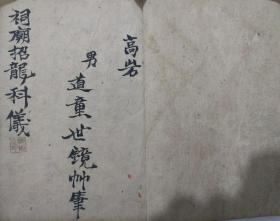 高岩
男道童世鏡艸筆
祠廟招龍科儀